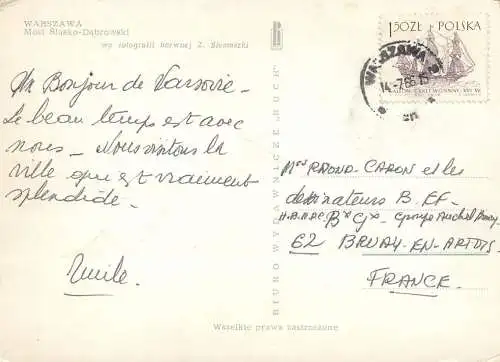 WARSZAWA
Most Śląsko-Dąbrowski
wg fotografii barwnej Z. Siemaszki
Un Bonjour de Varsovie.
Le beau temps est avec
nous. Nous visitons la
ville qui est vraiment
splendide.
Emile.
BIURO WYDAWNICZE "RUCH"
1,50ZŁ POLSKA
WARSZAWA
14-7.66.15
GALEON OKRĘT WOJENNY XVI W.
Mrs CARON et les
dessinateurs B. EF.
Bx Gx Groupe
62 BRUAY-EN-ARTOIS
FRANCE
Wszelkie prawa zastrzeżone